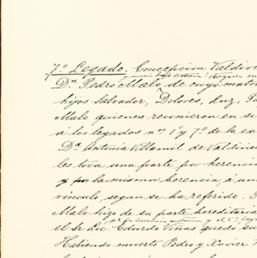 7º Legado. Concepcion Valdivi
Dⁿ Pedro Malo de cuyo matri
hijos Salvador, Dolores, Luz, Pa
Malo quienes reunieron en su
á los legados nº 1 y 7º de la ca
Dª Antonia Villamil de Valdivie
les toca una parte por herenci
la misma herencia á un
vinculo segun se ha referido. S
Malo hizo de su parte hereditari
el Sr Lic. Eduardo Viñas quedó su
Habiendo muerto Pedro y Javier M